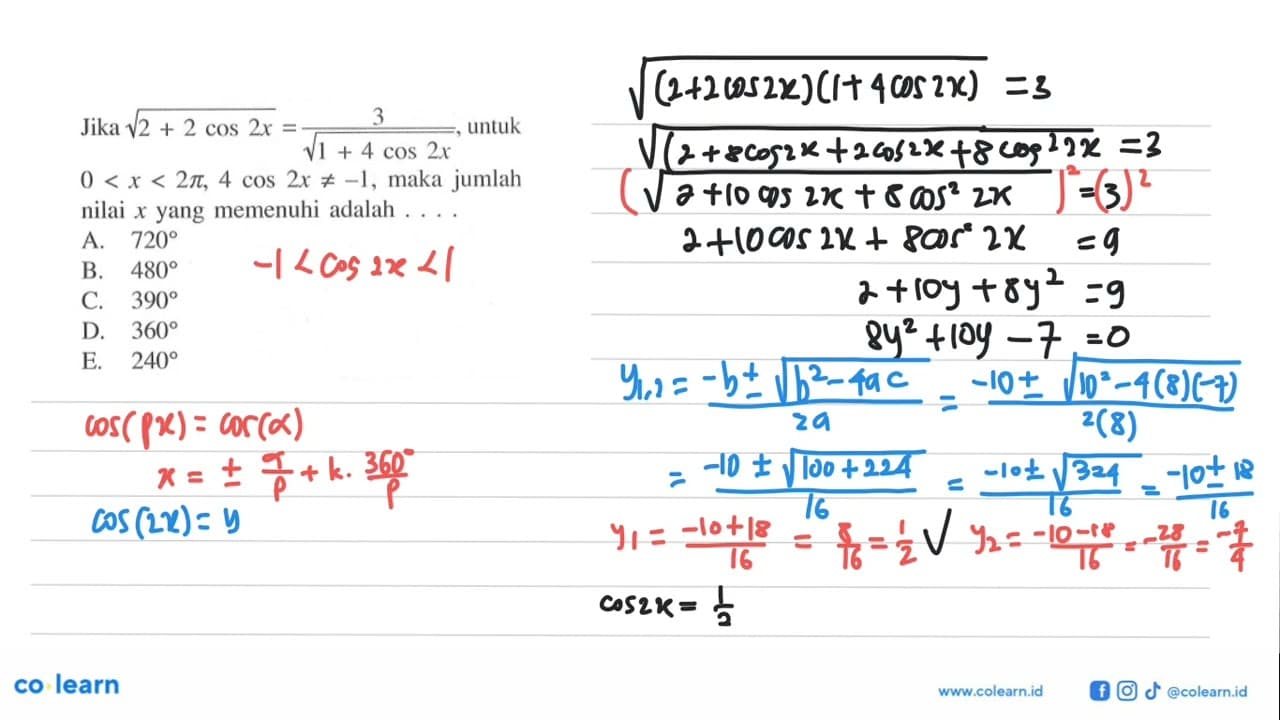 Jika √(2 + 2 cos 2x) = 3/√(1 + 4 cos 2x), untuk
0 < x < 2π, 4 cos 2x ≠ –1, maka jumlah
nilai x yang memenuhi adalah . . . .
A. 720°
B. 480°
C. 390°
D. 360°
E. 240°
-1 < cos 2x < 1
cos(px) = cos(α)
x = ± α/p + k. 360°/p
cos(2x) = y
√((2+2cos2x)(1+4cos2x)) = 3
√(2+8cos2x+2cos2x+8cos²2x) = 3
(√(2+10cos2x+8cos²2x))² = (3)²
2+10cos2x+8cos²2x = 9
2+10y+8y² = 9
8y²+10y-7 = 0
y1,2 = (-b±√(b²-4ac))/2a = (-10±√(10²-4(8)(-7)))/2(8)
= (-10±√(100+224))/16 = (-10±√324)/16 = (-10±18)/16
y1 = (-10+18)/16 = 8/16 = 1/2 √ y2 = (-10-18)/16 = -28/16 = -7/4
cos2x = 1/2
co learn
www.colearn.id
@colearn.id